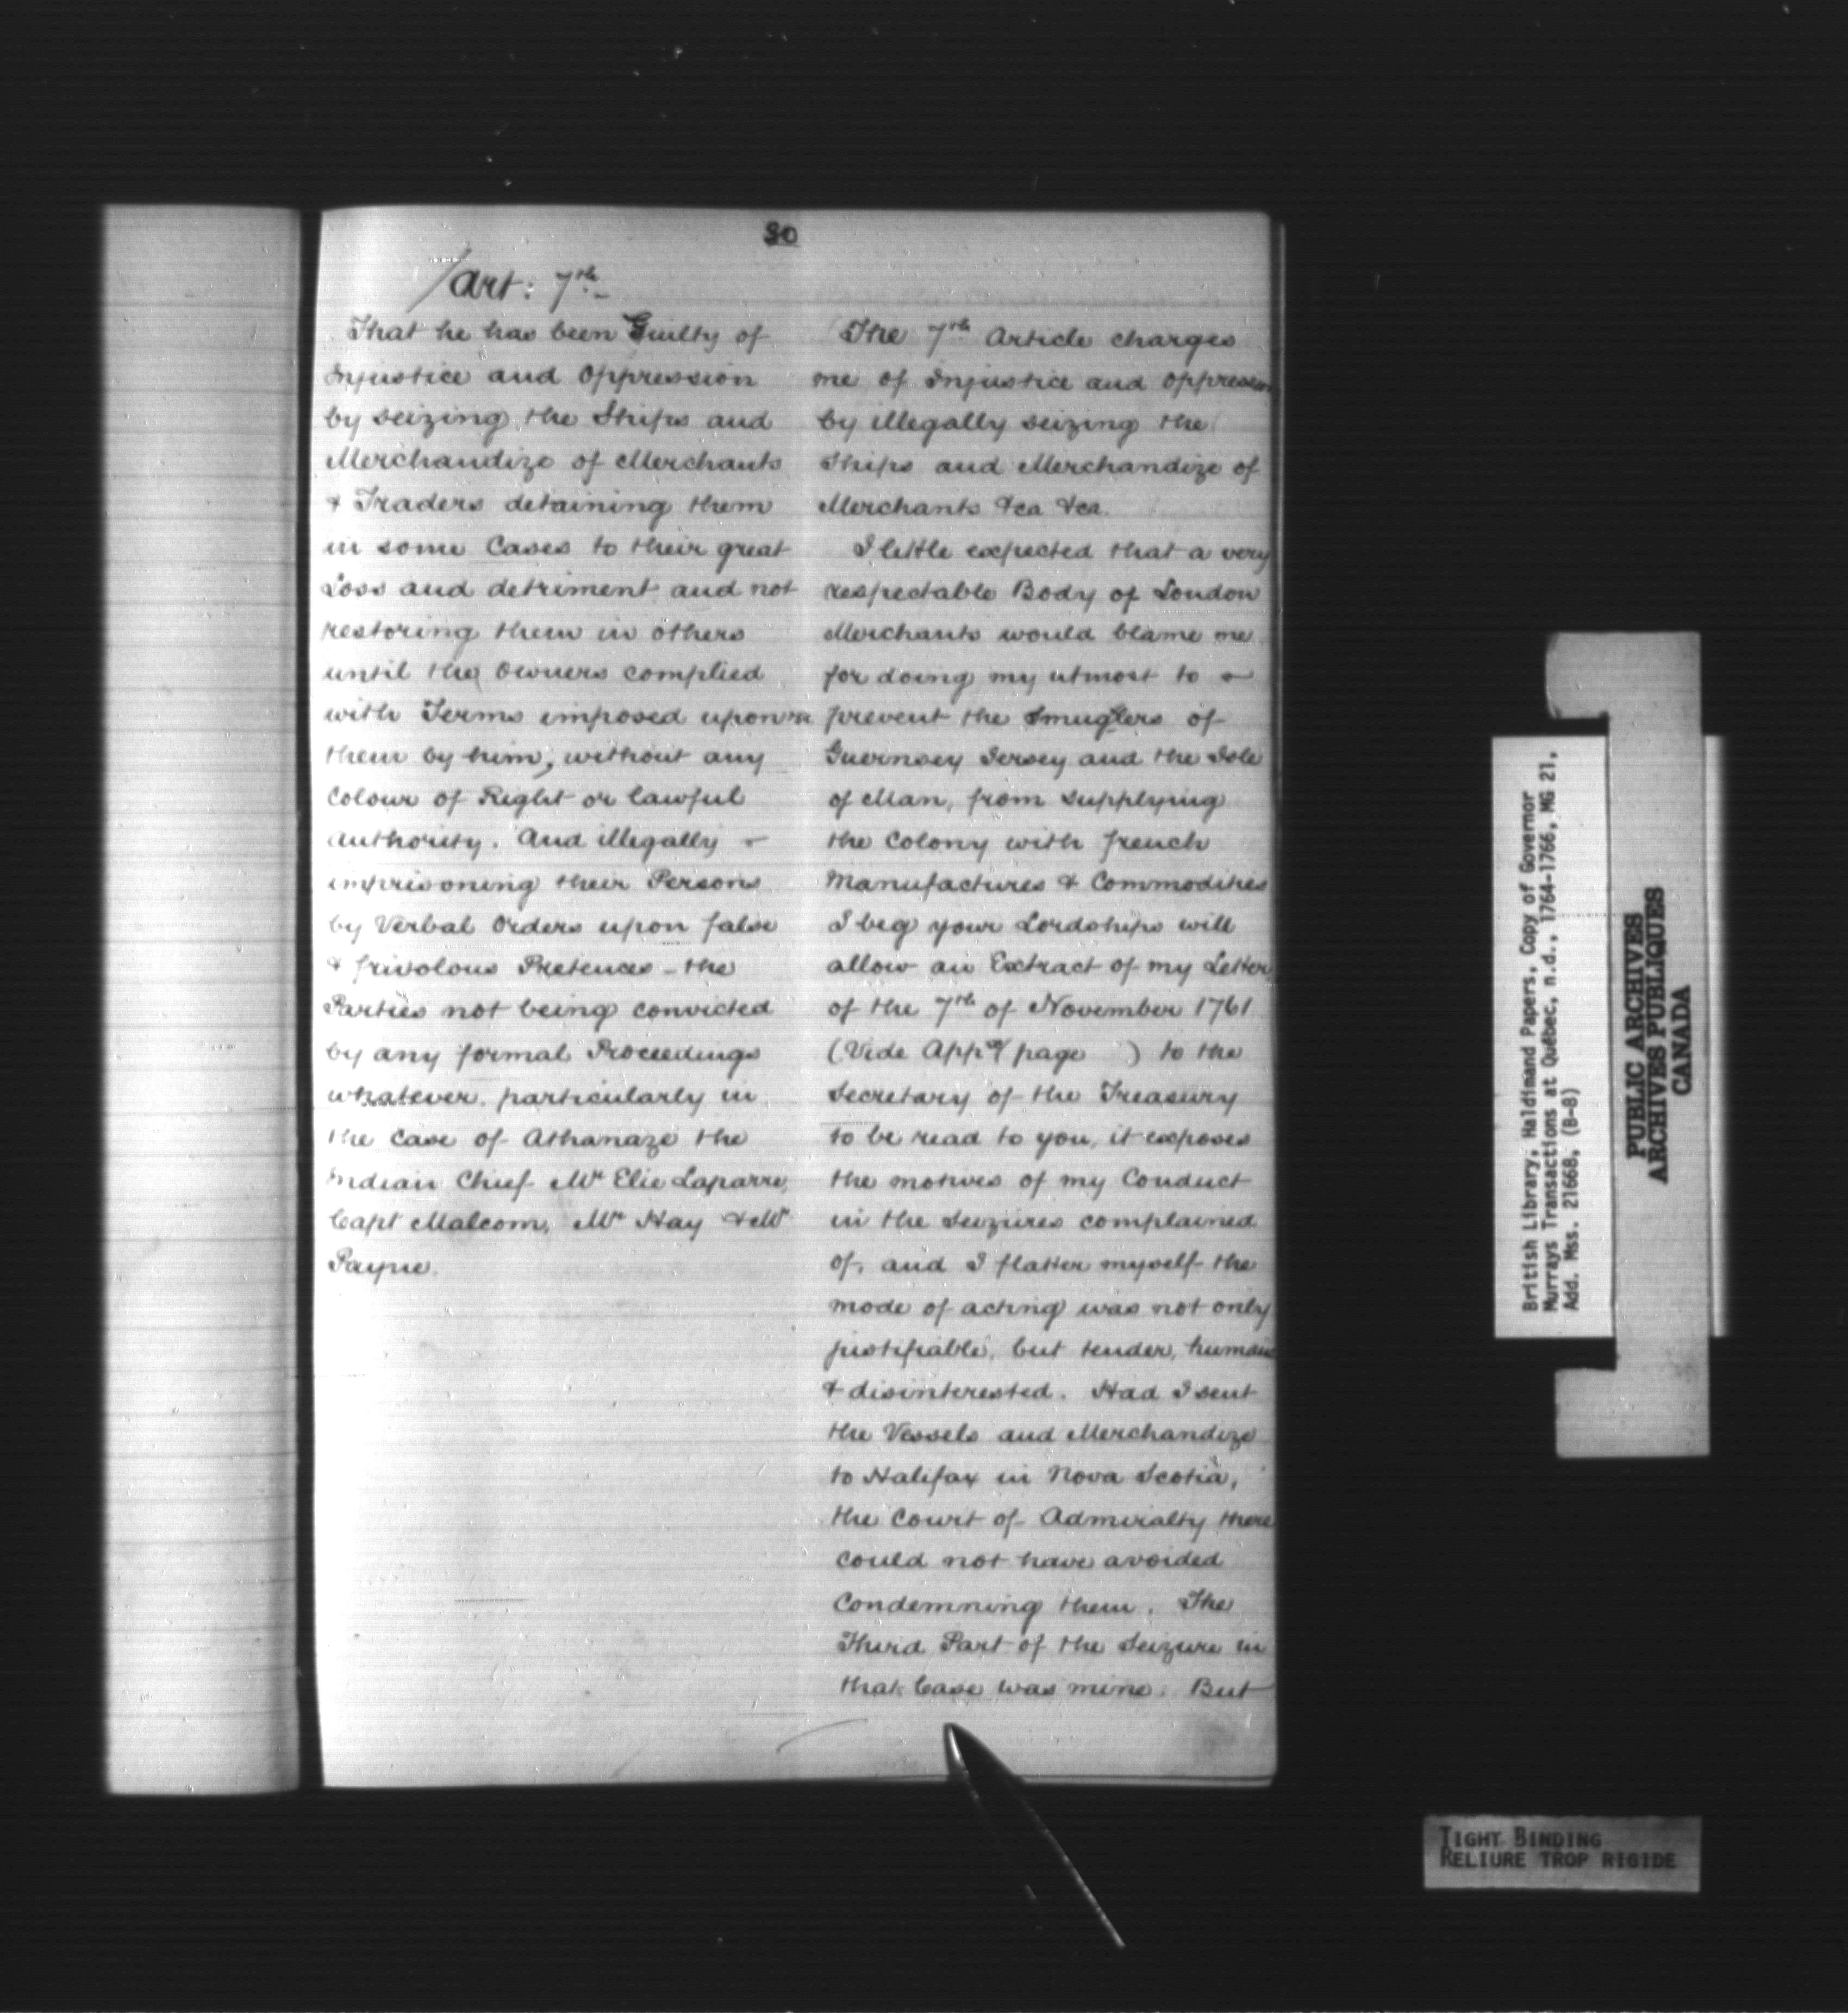 30
Art: 7th
That he has been Guilty of
Injustice and Oppression
by seizing the Ships and
Merchandize of Merchants
& Traders detaining them
in some Cases to their great
Loss and detriment and not
restoring them in others
until the Owners complied
with Terms imposed upon
them by him, without any
Colour of Right or lawful
authority. And illegally
imprisoning their Persons
by Verbal Orders upon false
& frivolous Pretences - the
Parties not being convicted
by any formal Proceedings
whatever. particularly in
the Case of Athanaze the
Indian Chief Mr Elie Laparre,
Capt Malcom, Mr Hay & Mr
Payne.
The 7th Article charges
me of Injustice and Oppression
by illegally seizing the
Ships and Merchandize of
Merchants &ca &ca.
I little expected that a very
respectable Body of London
Merchants would blame me
for doing my utmost to
prevent the Smuglers of
Guernsey Jersey and the Isle
of Man, from supplying
the Colony with french
Manufactures & Commodities
I beg your Lordships will
allow an Extract of my Letter
of the 7th of November 1761
(Vide Appx page ) to the
Secretary of the Treasury
to be read to you, it exposes
the motives of my Conduct
in the Seizures complained
of, and I flatter myself the
mode of acting was not only
justifiable, but tender, humane
& disinterested. Had I sent
the Vessels and Merchandize
to Halifax in Nova Scotia,
the Court of Admiralty there
could not have avoided
Condemning them. The
Third Part of the Seizure in
that Case was mine. But
British Library, Haldimand Papers, Copy of Governor
Murrays Transactions at Québec, n.d., 1764-1766, MG 21,
Add. Mss. 21668, (B-8)
PUBLIC ARCHIVES
ARCHIVES PUBLIQUES
CANADA
TIGHT BINDING
RELIURE TROP RIGIDE